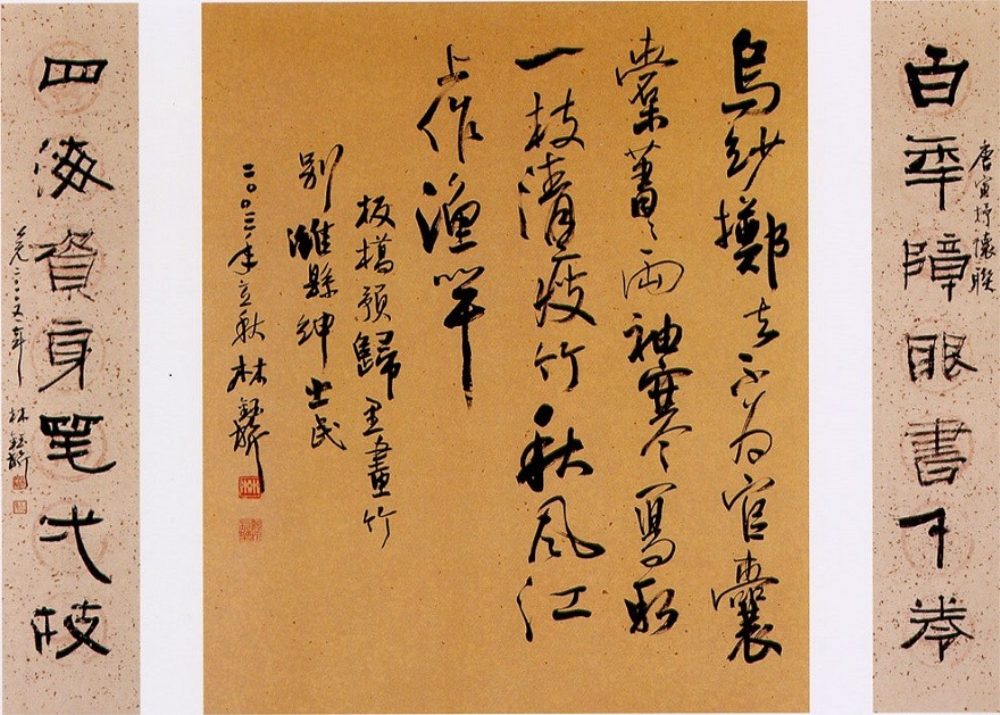 百年障眼書千卷
唐寅抒懷聯
烏紗擲去不为官囊
橐蕭〻兩袖寒寫取
一枝清瘦竹秋風江
上作漁竿
板橋預歸里畫竹
別濰縣紳士民
二〇〇三年立秋 林
四海資身笔弌枝
公元二〇〇五年 林